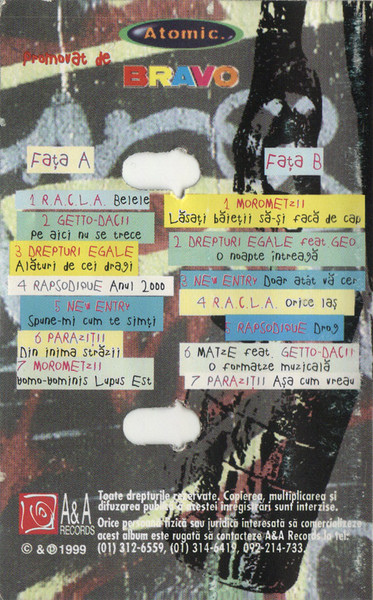 Atomic..
promovat de
BRAVO
Faţa A
1 R.A.C.L.A. Belele
2 GETTO-DACII
pe aici nu se trece
3 DREPTURI EGALE
Alături de cei dragi
4 RAPSODIQUE Anul 2000
5 NEW ENTRY
Spune-mi cum te simţi
6 PARAZIŢII
Din inima străzii
7 MOROMETZII
Homo-hominis Lupus Est
Faţa B
1 MOROMETZII
Lăsaţi băieţii să-şi facă de cap
2 DREPTURI EGALE feat GEO
O noapte întreagă
3 NEW ENTRY Doar atât vă cer
4 R.A.C.L.A. Orice laş
5 RAPSODIQUE Drog
6 MATZE feat. GETTO-DACII
O formaţze muzicală
7 PARAZIŢII Aşa cum vreau
A&A
RECORDS
© & ℗ 1999
Toate drepturile rezervate. Copierea, multiplicarea şi
difuzarea publică a acestei înregistrări sunt interzise.
Orice persoană fizică sau juridică interesată să comercializeze
acest album este rugată să contacteze A&A Records la tel:
(01) 312-6559, (01) 314-6419, 092-214-733.